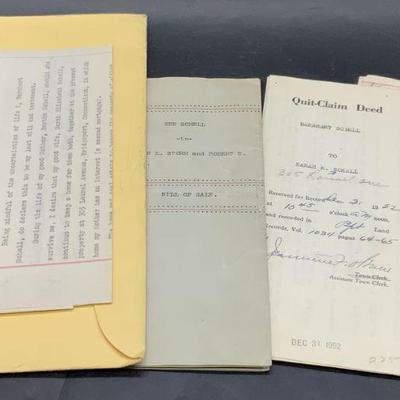 Being mindful of the uncertainties of life I, Barnhart
Schell, do declare this to be my last will and testament.
During the life of my good father, Martin Schell, should she
survive me, I desire that my good wife, Sarah Elizabeth Schell,
continue to keep a home for them both, together at the present
property at 305 Laurel Avenue, Bridgeport, Connecticut, in which
home my father has an interest in second mortgage.
SCHELL
-to-
STORM and ROBERT
BILL OF SALE.
Quit-Claim Deed
BARNHART SCHELL
TO
SARAH E. SCHELL
305 Laurel Ave
Received for Record Dec 31 1952
at 10:45 o'clock A M
and recorded in Bpt Land
Records, Vol. 1034 pages 64-65
Town Clerk.
Assistant Town Clerk.
DEC 31 1952